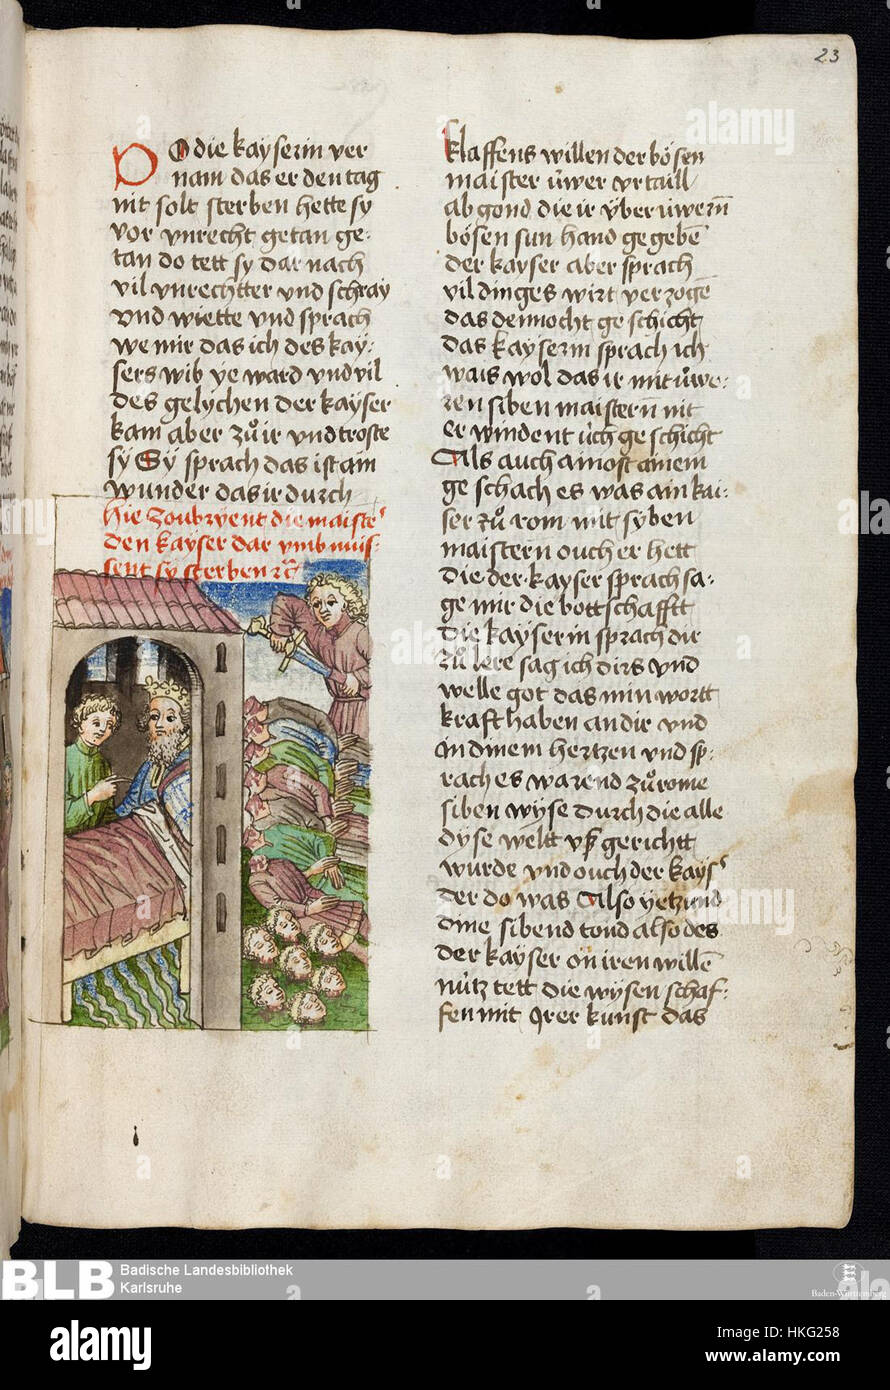 23
DO die kayserin ver
nam das er den tag
nit solt sterben hette sy
vor vnrecht getan ge-
tan do tett sy dar nach
vil vnrechtter vnd schray
vnd wiette vnd sprach
we mir das ich des kay-
sers wib ye ward vnd vil
des gelychen der kayser
kam aber zů ir vnd troste
sy Sy sprach das ist ain
wunder das ir durch
hie zoubryent die maister
den kayser dar vmb muis-
sent sy sterben
klaffens willen der bösen
maister ůwer vrtaill
ab gond die ir ÿber ůwern̄
bösen sun hand gegebē
der kayser aber sprach
vil dinges wirt verzogē
das dennocht geschicht
das kayserin sprach ich
wais wol das ir mit ůwe-
ren siben maistern̄ nit
erwindent ůch geschicht
Als auch amost ainem
geschach es was ain kai-
ser zů rom mit syben
maistern ouch er hett
die der kayser sprach sa-
ge mir die bottschafftt
die kayserin sprach dir
zů lere sag ich dirs vnd
welle got das min wortt
kraft haben an dir vnd
in dinem hertzen vnd sp-
rach es warend zů rome
siben wyse durch die alle
dyse weltt vs gerichtt
wurde vnd ouch der kays'
der do was Also yetzund
dine sibend tond also des
der kayser on iren willē
nütz tett die wysen schaf-
fen mit irer kunst das
BLB Badische Landesbibliothek
Karlsruhe
Baden-Württemberg
alamy
Image ID: HKG258
www.alamy.com